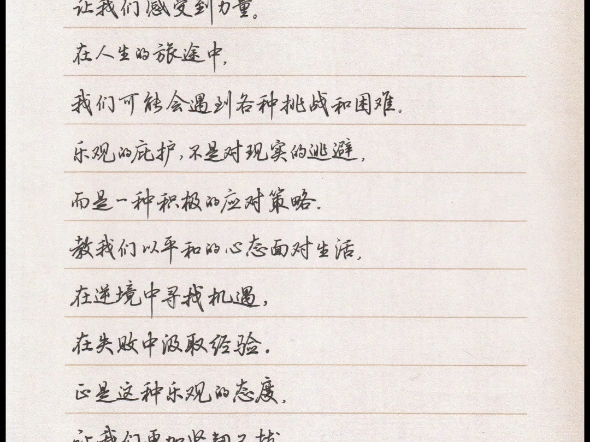 让我们感受到力量。
在人生的旅途中,
我们可能会遇到各种挑战和困难.
乐观的庇护,不是对现实的逃避,
而是一种积极的应对策略.
教我们以平和的心态面对生活,
在逆境中寻找机遇,
在失败中汲取经验.
正是这种乐观的态度,
让我们更加坚韧不拔